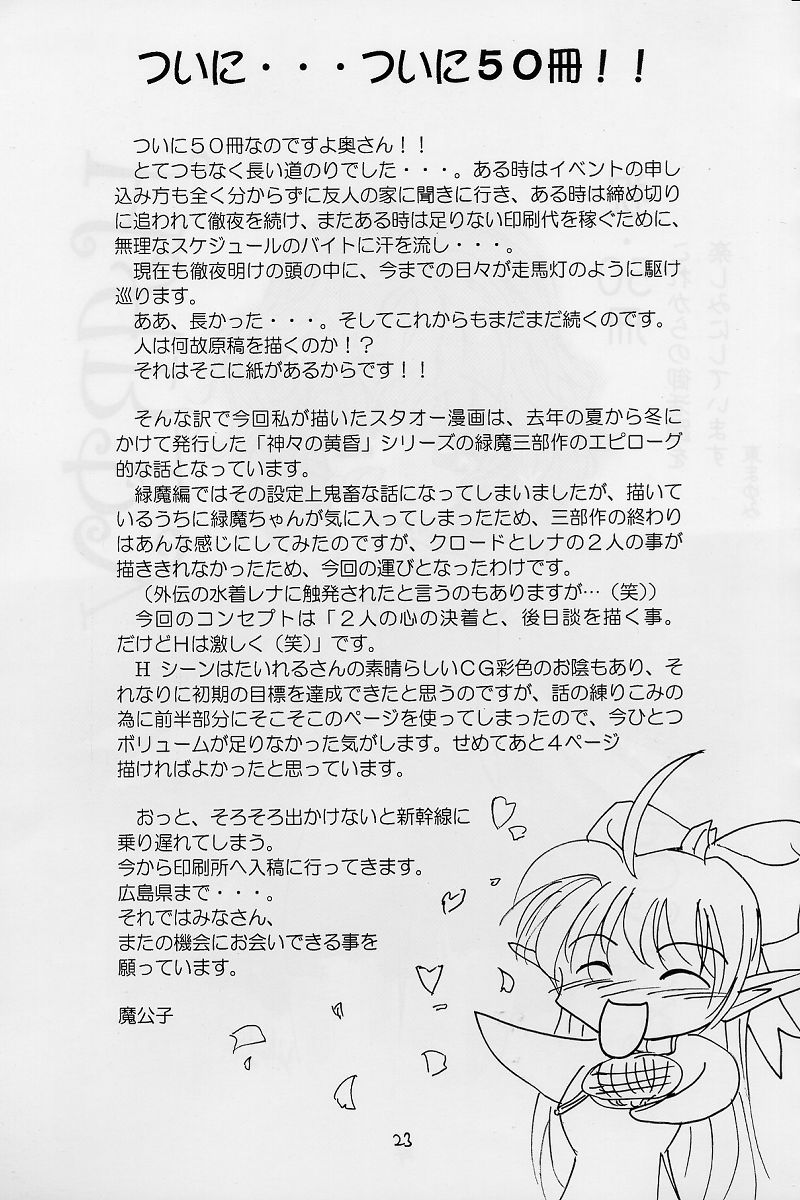 ついに・・・ついに５０冊！！
ついに５０冊なのですよ奥さん！！
とてつもなく長い道のりでした・・・。ある時はイベントの申し
込み方も全く分からずに友人の家に聞きに行き、ある時は締め切り
に追われて徹夜を続け、またある時は足りない印刷代を稼ぐために、
無理なスケジュールのバイトに汗を流し・・・。
現在も徹夜明けの頭の中に、今までの日々が走馬灯のように駆け
巡ります。
ああ、長かった・・・。そしてこれからもまだまだ続くのです。
人は何故原稿を描くのか！？
それはそこに紙があるからです！！
そんな訳で今回私が描いたスタオー漫画は、去年の夏から冬に
かけて発行した「神々の黄昏」シリーズの緑魔三部作のエピローグ
的な話となっています。
緑魔編ではその設定上鬼畜な話になってしまいましたが、描いて
いるうちに緑魔ちゃんが気に入ってしまったため、三部作の終わり
はあんな感じにしてみたのですが、クロードとレナの２人の事が
描ききれなかったため、今回の運びとなったわけです。
（外伝の水着レナに触発されたと言うのもありますが…（笑））
今回のコンセプトは「２人の心の決着と、後日談を描く事。
だけどＨは激しく（笑）」です。
Ｈ シーンはたいれるさんの素晴らしいＣＧ彩色のお陰もあり、そ
れなりに初期の目標を達成できたと思うのですが、話の練りこみの
為に前半部分にそこそこのページを使ってしまったので、今ひとつ
ボリュームが足りなかった気がします。せめてあと４ページ
描ければよかったと思っています。
おっと、そろそろ出かけないと新幹線に
乗り遅れてしまう。
今から印刷所へ入稿に行ってきます。
広島県まで・・・。
それではみなさん、
またの機会にお会いできる事を
願っています。
魔公子
23